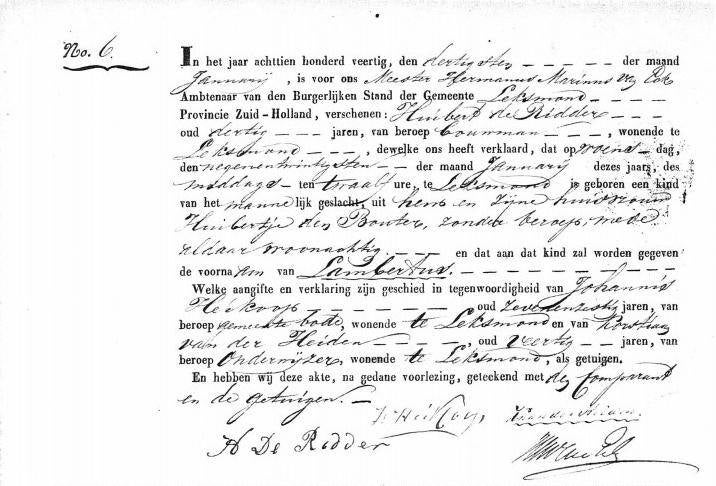 No. 6.
In het jaar achttien honderd veertig, den dertigsten - - - - - der maand
Januarij, is voor ons Meester Hermanus Marinus van Eck
Ambtenaar van den Burgerlijken Stand der Gemeente Leksmond - - - -
Provincie Zuid-Holland, verschenen: Huibert de Ridder - - -
oud dertig - - - jaren, van beroep bouwman - - - -, wonende te
Leksmond - - - -, dewelke ons heeft verklaard, dat op woens-dag,
den negenentwintigsten - - der maand Januarij dezes jaars, des
middags - ten twaalf ure, te Leksmond is geboren een kind
van het mannelijk geslacht, uit hem en zijne huisvrouw
Huibertje den Bouter, zonder beroep, mede
aldaar woonachtig. - - - en dat aan dat kind zal worden gegeven
de voornaam van Lambertus. - - - - - - - - -
Welke aangifte en verklaring zijn geschied in tegenwoordigheid van Johannis
Heikoop - - - - - - - oud zevenenzestig jaren, van
beroep gemeente bode, wonende te Leksmond en van
van der Heiden - - - -, oud veertig - - jaren, van
beroep Onderwijzer, wonende te Leksmond, als getuigen.
En hebben wij deze akte, na gedane voorlezing, geteekend met den Comparant
en de getuigen. -
J. Heikoop,
H De Ridder